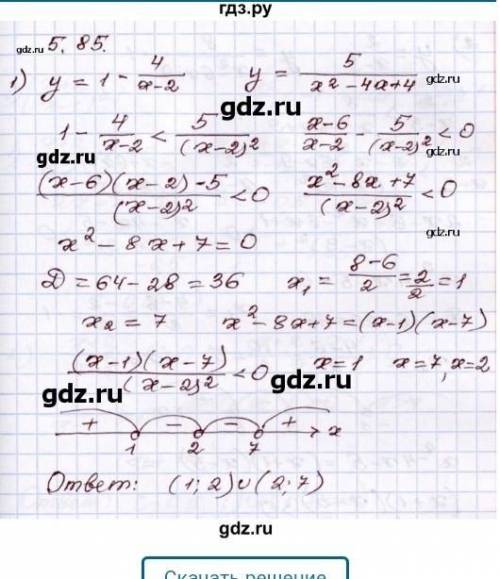 гдз.ру
gdz.ru 5.85.
1) y = 1 - 4/(x-2)    y = 5/(x² - 4x + 4)
gdz.ru
gdz.ru
1 - 4/(x-2) < 5/(x-2)²    (x-6)/(x-2) - 5/(x-2)² < 0
gdz.ru
gdz.ru
((x-6)(x-2) - 5)/(x-2)² < 0    (x² - 8x + 7)/(x-2)² < 0
x² - 8x + 7 = 0
gdz.ru
D = 64 - 28 = 36    x₁ = (8-6)/2 = 2/2 = 1
x₂ = 7    x² - 8x + 7 = (x-1)(x-7)
((x-1)(x-7))/(x-2)² < 0    x=1    x=7, x=2
gdz.ru
gdz.ru
+ - - + x
1 2 7
Ответ: (1; 2) ∪ (2; 7)
gdz.ru
Скачать решение